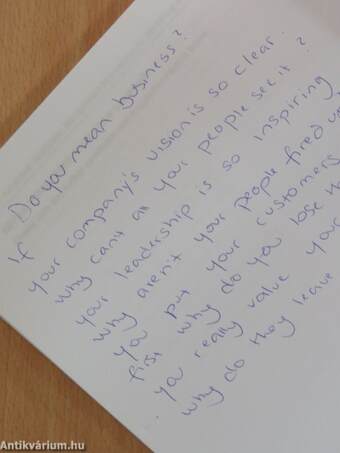 Do you mean business?
If
your company's vision is so clear.
why can't all your people see it?
your leadership is so inspiring
why aren't your people fired
you put your customers
first why do you lose
you really value your
why do they leave
Antikvárium.hu